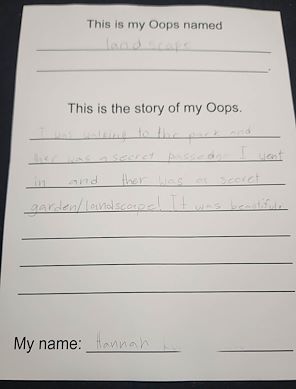 This is my Oops named
landscape
This is the story of my Oops.
I was walking to the park and
ther was a secret passedge I went
in and ther was a secret
garden/landscape! It was beautiful.
My name: Hannah L.